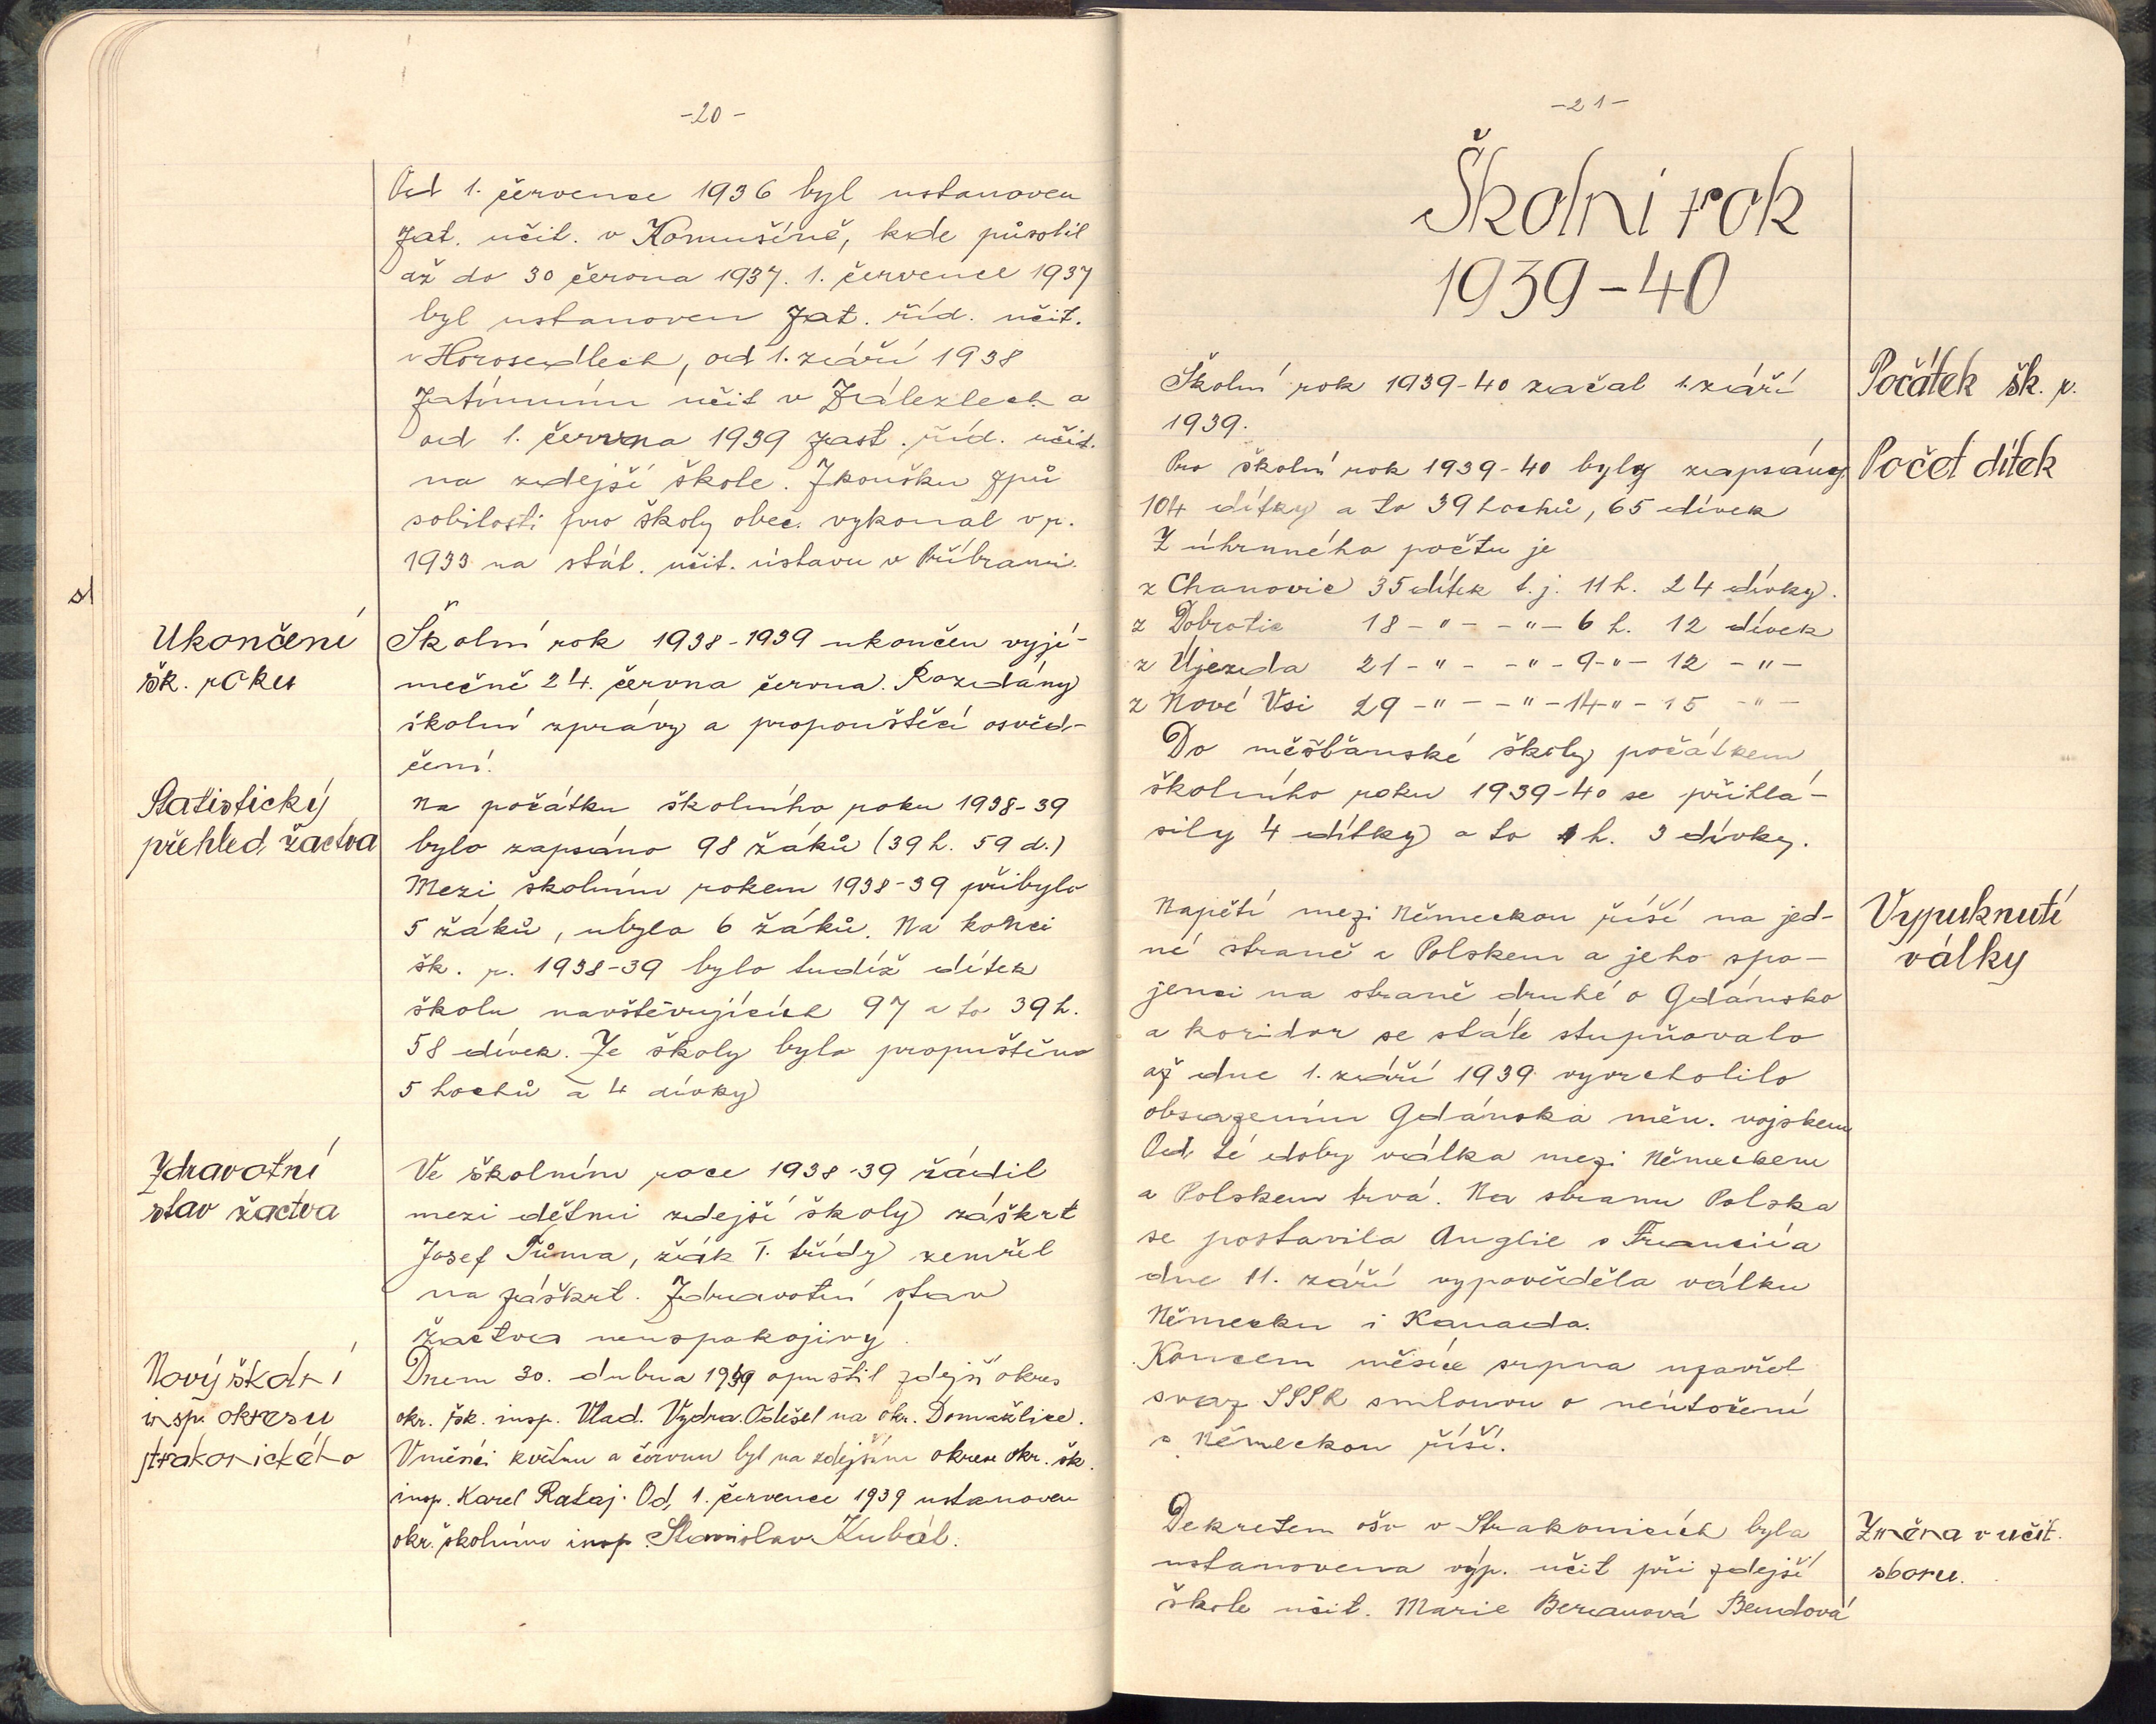 -20-
Od 1. července 1936 byl ustanoven
zat. učit. v Komušíně, kde působil
až do 30 června 1937. 1. července 1937
byl ustanoven zat. říd. učit.
v Horosedlech, od 1. září 1938
zatímním učit v Zálezlech a
od 1. června 1939 zast. říd. učit.
na zdejší škole. Zkoušku způ
sobilosti pro školy obec. vykonal v r.
1933 na stát. učit. ústavu v Příbrami.
Ukončení
šk. roku
Školní rok 1938-1939 ukončen vyjí-
mečně 24. června června. Rozdány
školní zprávy a propouštěcí osvěd-
čení.
Statistický
přehled žactva
Na počátku školního roku 1938-39
bylo zapsáno 98 žáků (39 h. 59 d.)
Mezi školním rokem 1938-39 přibylo
5 žáků, ubylo 6 žáků. Na konci
šk. r. 1938-39 bylo tudíž dítek
školu navštěvujících 97 a to 39 h.
58 dívek. Ze školy bylo propuštěno
5 hochů a 4 dívky
Zdravotní
stav žactva
Ve školním roce 1938-39 řádil
mezi dětmi zdejší školy záškrt
Josef Tůma, žák I. třídy zemřel
na záškrt. Zdravotní stav
žactva neuspokojivý.
Nový školní
insp. okresu
strakonického
Dnem 30. dubna 1939 opustil zdejší okres
okr. šk. insp. Vlad. Vydra. Odešel na okr. Domažlice.
V měsíci květnu a červnu byl na zdejším okrese okr. šk.
insp. Karel Rataj. Od 1. července 1939 ustanoven
okr. školním insp. Stanislav Kubát.
-21-
Školní rok
1939-40
Počátek šk. r.
Školní rok 1939-40 začal 1. září
1939.
Počet dítek
Pro školní rok 1939-40 byly zapsány
104 dítky a to 39 hochů, 65 dívek
Z úhrnného počtu je
z Chanovic 35 dítek t.j. 11 h. 24 dívky.
z Dobrotic 18 -"- -"- 6 h. 12 dívek
z Újezda 21 -"- -"- 9 -"- 12 -"-
z Nové Vsi 29 -"- -"- 14 -"- 15 -"-
Do měšťanské školy počátkem
školního roku 1939-40 se přihlá-
sily 4 dítky a to 1 h. 3 dívky.
Vypuknutí
války
Napětí mezi Německou říší na jed-
né straně a Polskem a jeho spo-
jenci na straně druhé o Gdánsko
a koridor se stále stupňovalo
až dne 1. září 1939 vyvrcholilo
obsazením Gdánska něm. vojskem
Od té doby válka mezi Německem
a Polskem trvá. Na stranu Polska
se postavila Anglie s Francií a
dne 11. září vypověděla válku
Německu i Kanada.
Koncem měsíce srpna uzavřel
svaz SSSR smlouvu o neútočení
s Německou říší.
Změna v učit.
sboru.
Dekretem ošv v Strakonicích byla
ustanovena výp. učit při zdejší
škole učit. Marie Beranová Bendová